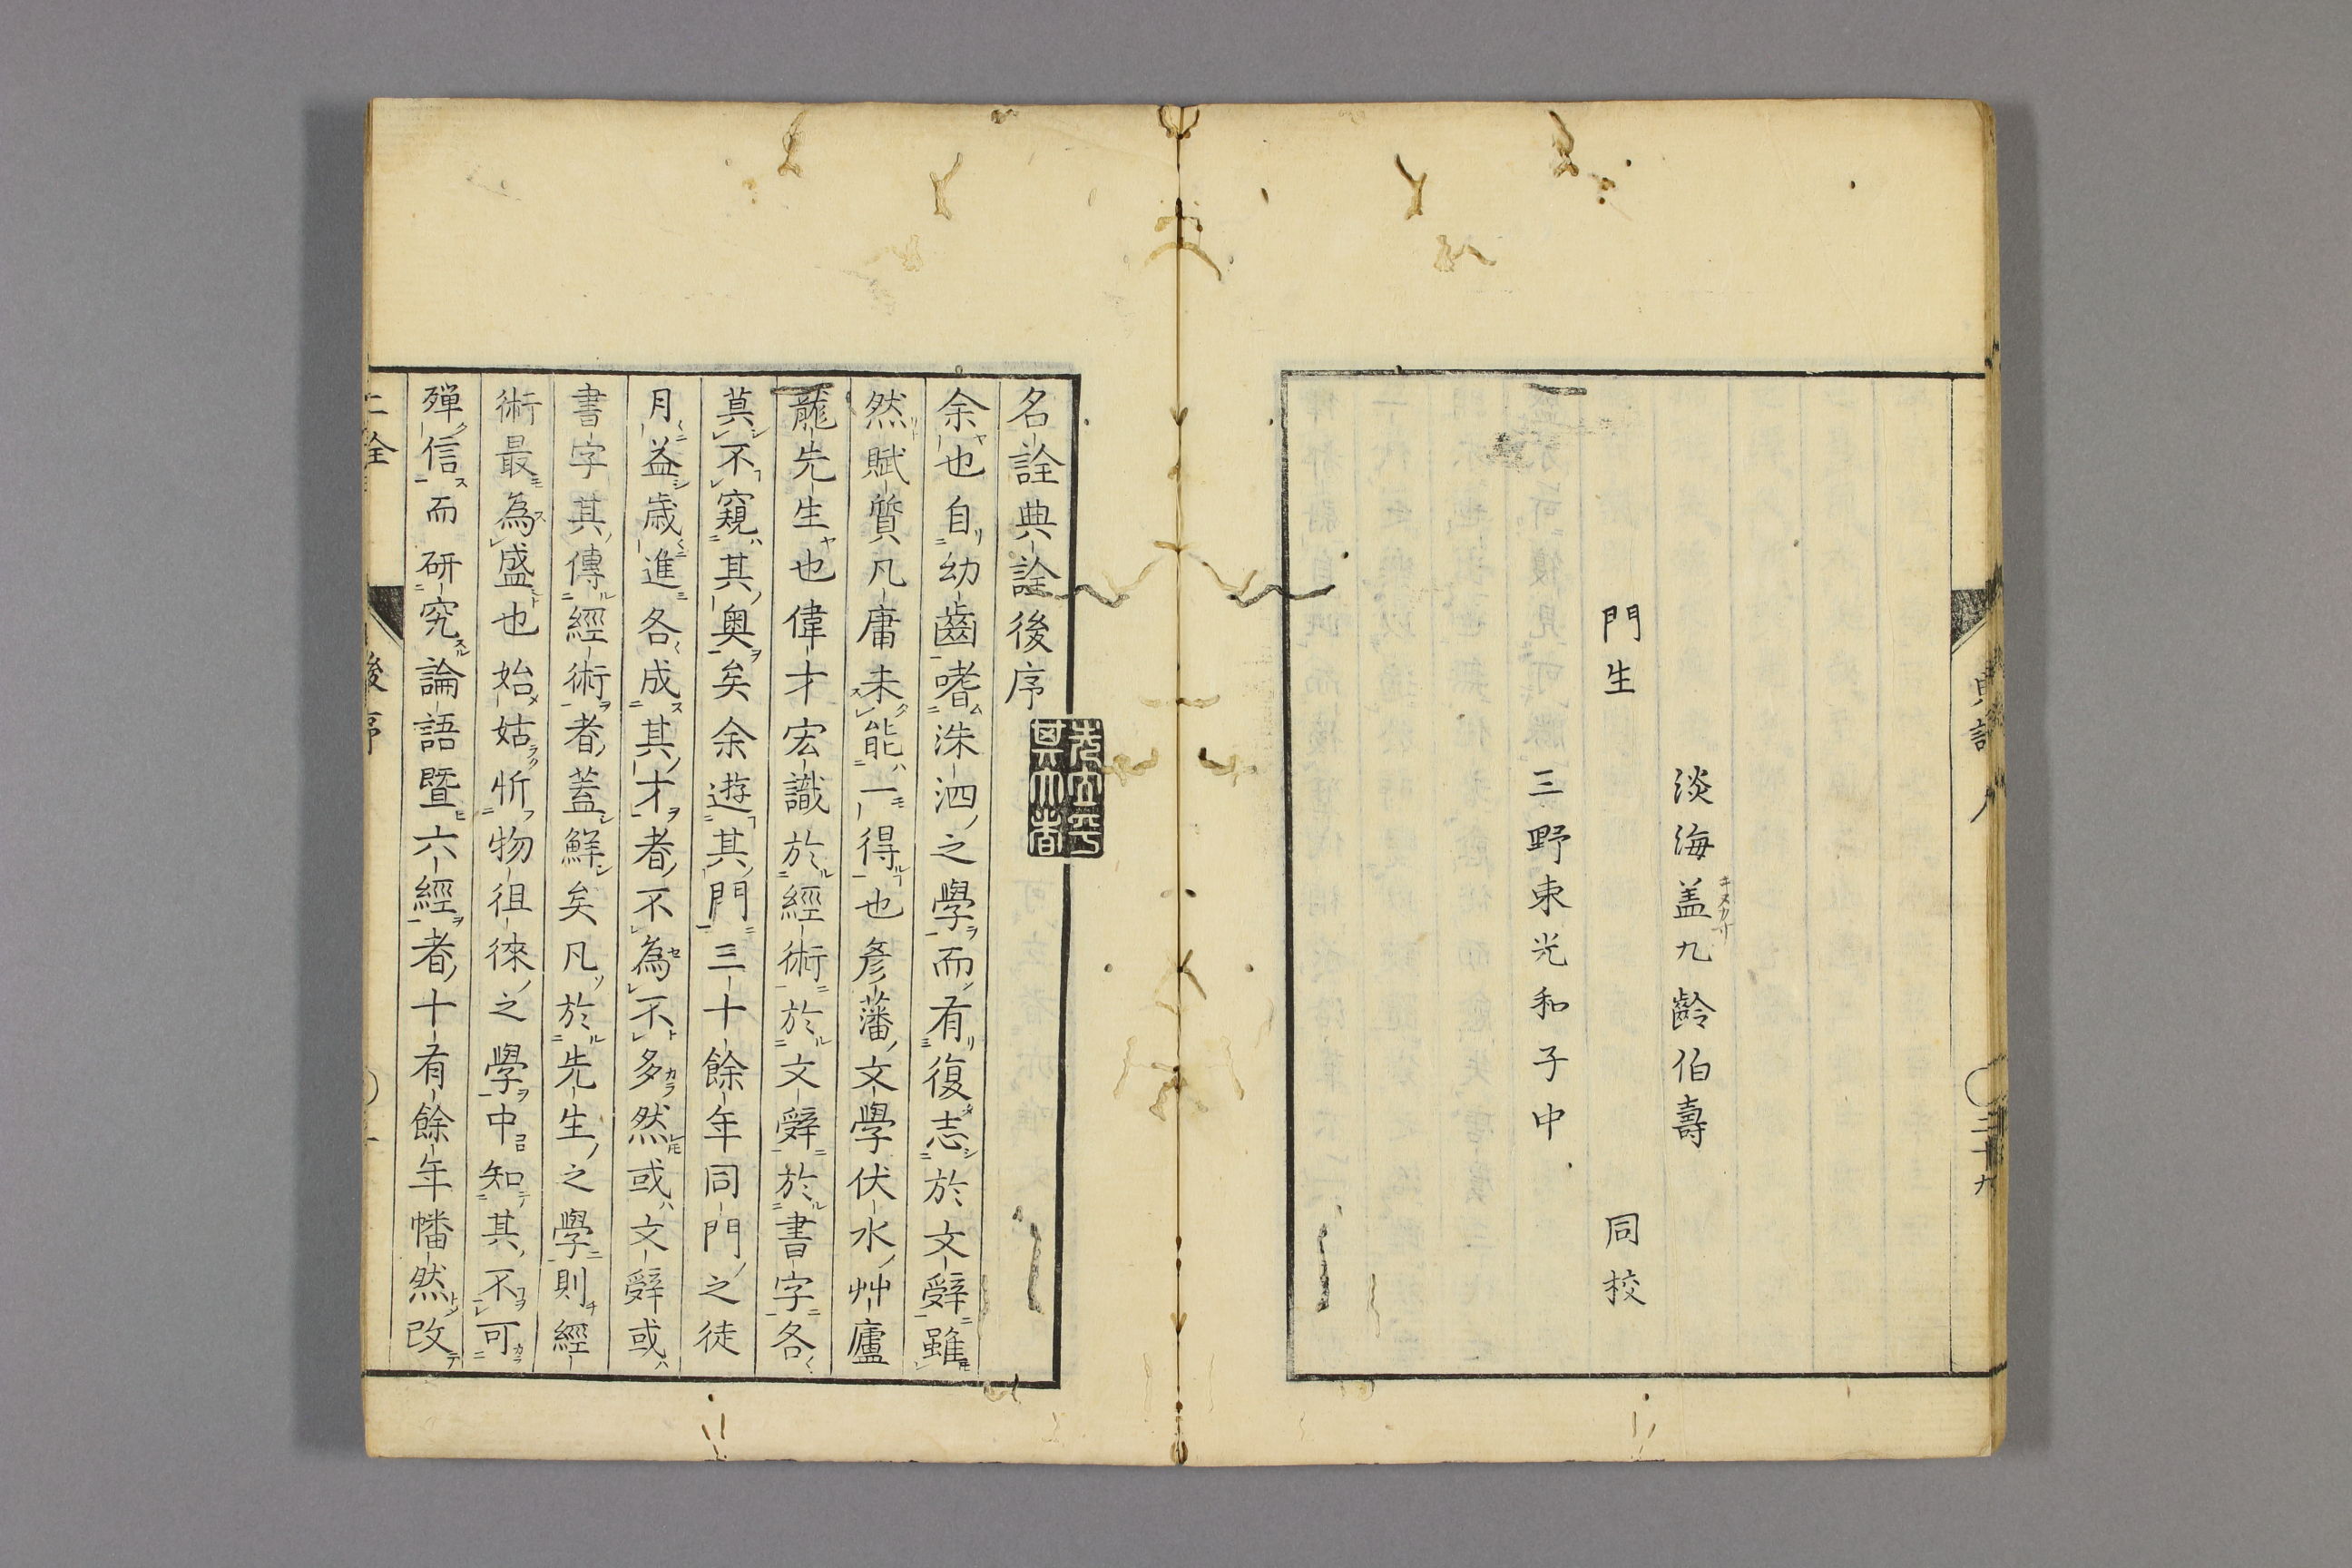 淡海盖九齡伯壽
キヌカサ
門生　同校
三野東光和子中
三十九
名詮典詮後序
余也自幼齒嗜洙泗之學而有復志於文辭雖
然賦質凡庸未能一得也彥藩文學伏水艸廬
龍先生也偉才宏識於經術於文辭於書字各
莫不窺其奧矣余遊其門三十餘年同門之徒
月益歳進各成其才者不為不多然或文辭或
書字其傳經術者蓋鮮矣凡於先生之學則經
術最為盛也始姑忻物徂徠之學中知其不可
殫信而研究論語暨六經者十有餘年幡然改
後序